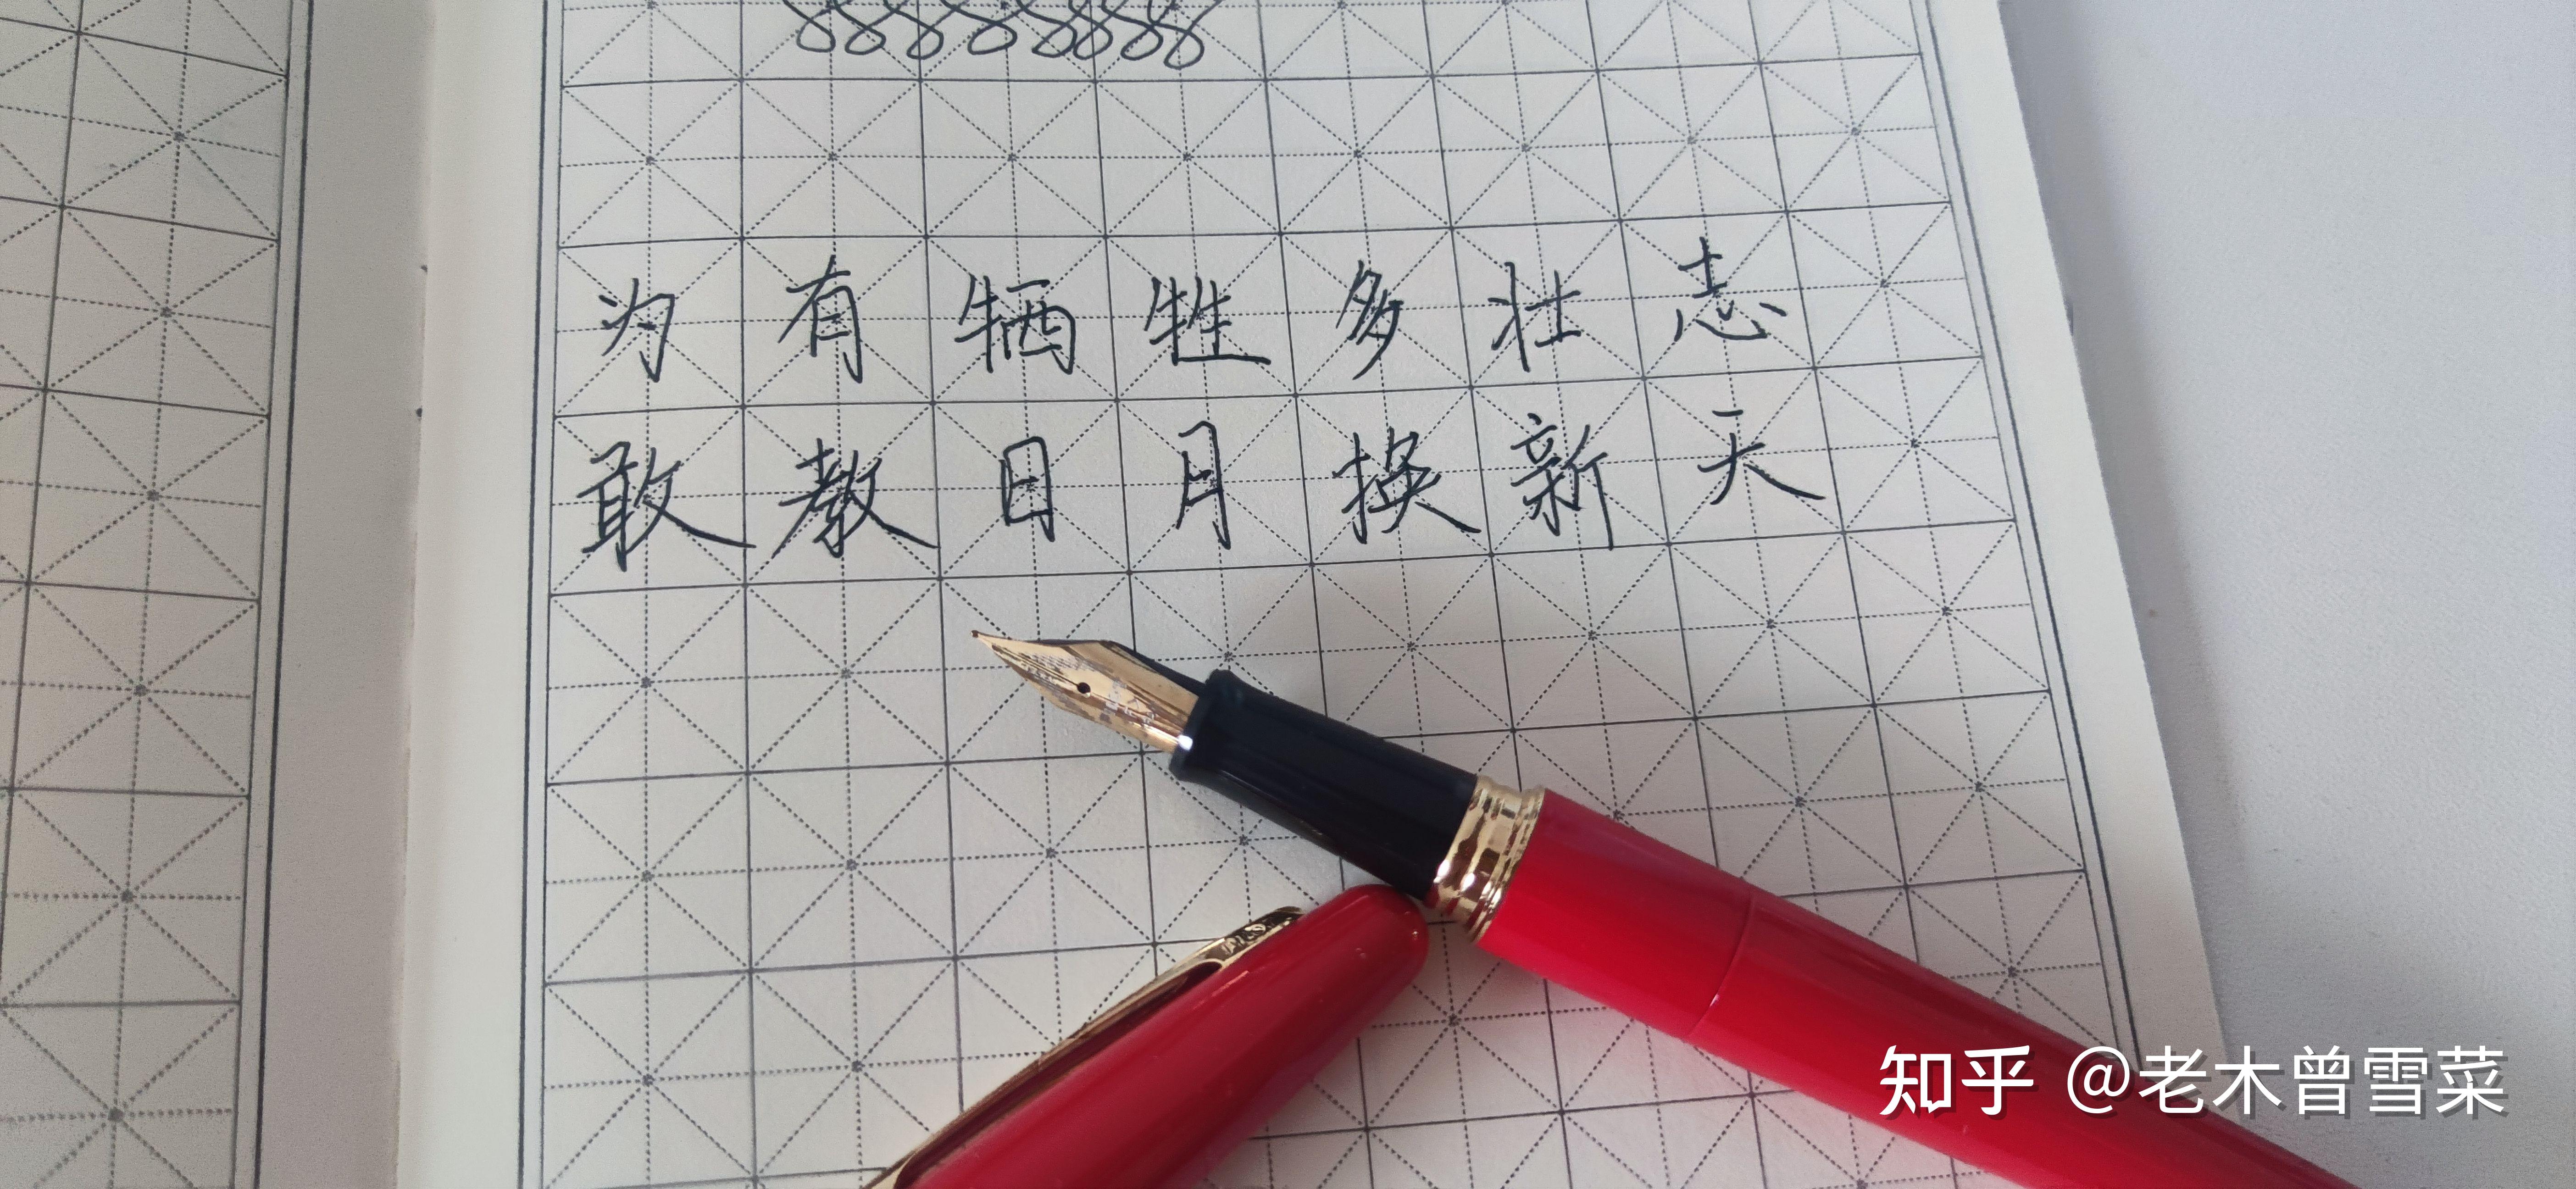 为有牺牲多壮志
敢教日月换新天
知乎 @老木曾雪菜